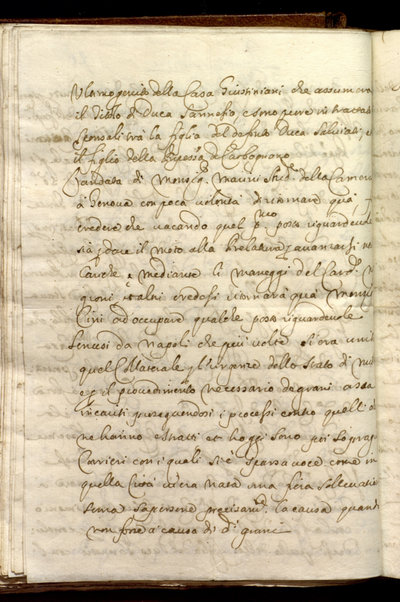 Ultimo genito della Casa Giustiniani che assumerà
il Titolo di Duca Sannesio, e sono pure in trattat
sponsali tra la figlia del defunto Duca Salviati, e
il figlio della Pnpessa di Carbognano
L'andata di Monsig.r Marini della Camera
à Genova con poca volontà di ritornare quà
credere che vacando quel posto riguardevole
sia dove il moto alla Prelatura avanzarsi ne
Cariche, e mediante li maneggi del Card.
altri credesi ritornarà quà Mons
Cini ad occupare qualche posto riguardevole
Sentesi da Napoli che più volte si era unit
quel Collaterale p l'urgenze dello Stato di
e p il provedimento necessario de grani
incauti proseguendosi i processi contro quelli
ne hanno estratti et hoggi sono poi sopra
Corrieri con i quali si è sparsa voce come in
quella Città era nata una fiera sollevatio
senza sapersene precisam.te la causa quan
non fosse a causa di d.i grani